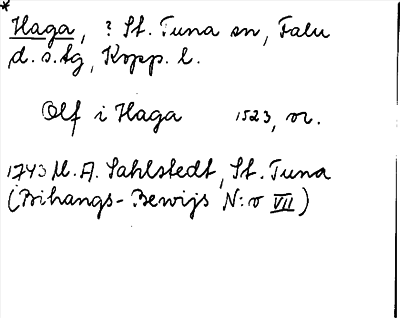 *
Haga, ? St. Tuna sn, Falu
d.s.tg, Kopp. l.
Olf i Haga 1523, or.
1743 M. A. Sahlstedt, St. Tuna
(Bihangs-Bewijs N:o VII)